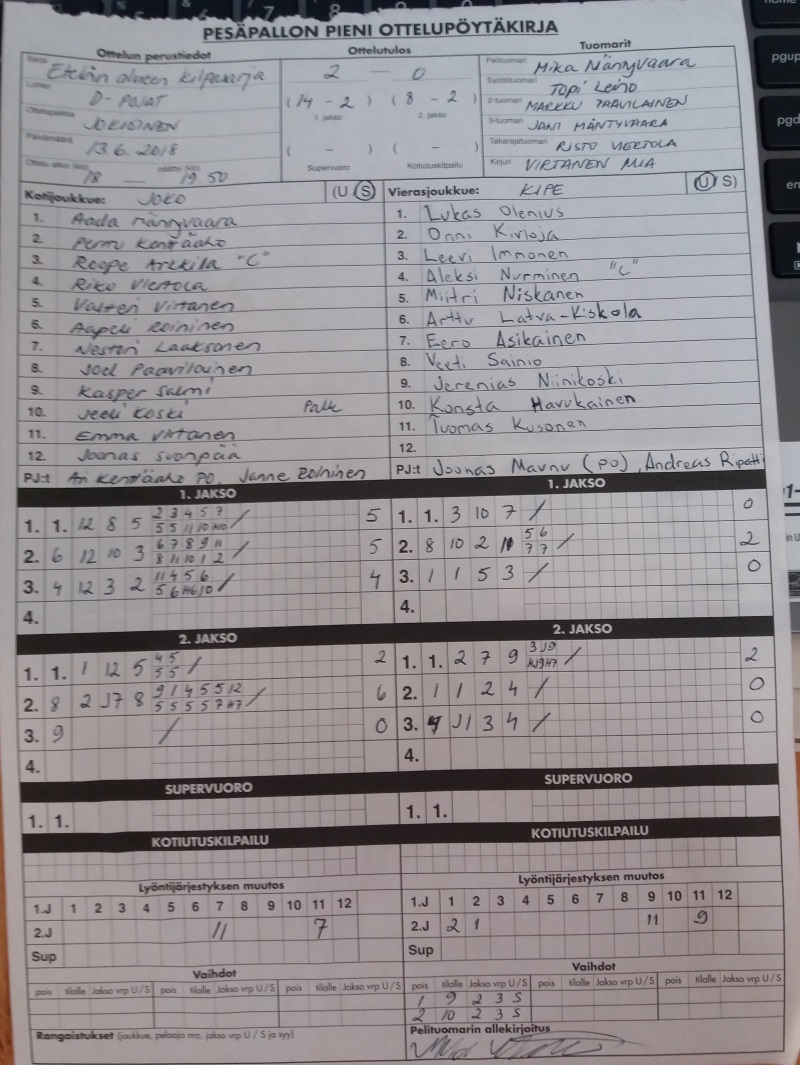 PESÄPALLON PIENI OTTELUPÖYTÄKIRJA
Ottelun perustiedot Ottelutulos Tuomarit
Etelän alueen kilpasarja 2 — 0 Pelituomari Mika Mäntyvaara
D-POJAT (14 - 2) (8 - 2) Syöttötuomari TOPI Leino
1. jakso 2. jakso 2-tuomari MARKKU PAAVILAINEN
Ottelupaikka JOKIOINEN 3-tuomari JANI MÄNTYVAARA
Päivämäärä 13.6.2018 ( - ) ( - ) Takarajatuomari RISTO VIERTOLA
18 — 19.50 Supervuoro Kotiutuskilpailu Kirjuri VIRTANEN MIA
Kotijoukkue: JOKO (U S) Vierasjoukkue: KIPE (U S)
1. Aada Mäntyvaara 1. Lukas Olenius
2. Perttu Kenttäaho 2. Onni Kivioja
3. Roope Arkkila "C" 3. Leevi Immonen
4. Riko Viertola 4. Aleksi Nurminen "C"
5. Valtteri Virtanen 5. Miitri Niskanen
6. Aapeli Roininen 6. Arttu Latva-Kiskola
7. Nestori Laaksonen 7. Eero Asikainen
8. Joel Paavilainen 8. Veeti Sainio
9. Kasper Salmi 9. Jeremias Niinikoski
10. Jeeli Koski 10. Konsta Havukainen
11. Emma Virtanen 11. Tuomas Kusonen
12. Joonas Suonpää 12.
PJ:t Ari Kenttäaho PO, Janne Roininen PJ:t Joonas Maunu (PO), Andreas Ripatti
1. JAKSO 1. JAKSO
1. 1. 12 8 5 2 3 4 5 7 / 5 1. 1. 3 10 7 / 0
2. 6 12 10 3 6 7 8 9 11 / 5 2. 8 10 2 5 6 / 2
8 11 10 1 2 7 7
3. 4 12 3 2 11 4 5 6 / 4 3. 1 1 5 3 / 0
4. 4.
2. JAKSO 2. JAKSO
1. 1. 1 12 5 4 5 / 2 1. 1. 2 7 9 3 J9 / 2
5 5
2. 8 2 J7 8 9 1 4 5 5 12 / 6 2. 1 1 2 4 / 0
3. 9 / 0 3. J1 3 4 / 0
4. 4.
SUPERVUORO SUPERVUORO
1. 1. 1. 1.
KOTIUTUSKILPAILU KOTIUTUSKILPAILU
Lyöntijärjestyksen muutos Lyöntijärjestyksen muutos
1.J 1 2 3 4 5 6 7 8 9 10 11 12 1.J 1 2 3 4 5 6 7 8 9 10 11 12
2.J 11 7 2.J 2 1 11 9
Sup Sup
Vaihdot Vaihdot
pois tilalle Jakso vrp U / S pois tilalle Jakso vrp U / S pois tilalle Jakso vrp U / S pois tilalle Jakso vrp U / S pois tilalle Jakso vrp U / S pois tilalle Jakso vrp U / S
1 9 2 3 S
2 10 2 3 S
Rangaistukset (joukkue, pelaaja nro, jakso vrp U / S ja syy) Pelituomarin allekirjoitus